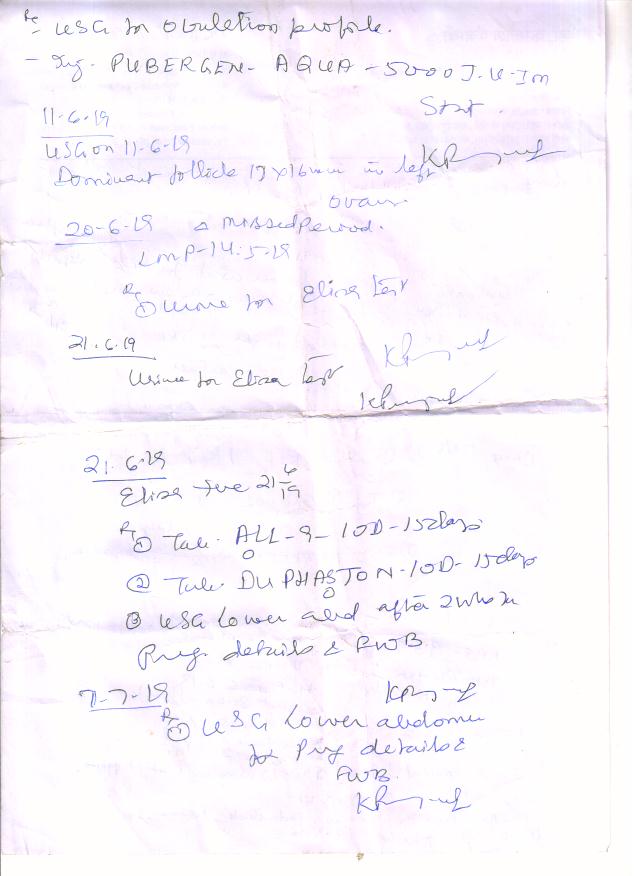 Rx
- USG for Ovulation profile.
- Inj. PUBERGEN - AQUA - 5000 I.U - Im
Stat.
11-6-19
USG on 11-6-19
Dominent follicle 17x16mm in left
ovary.
20-6-19 missed period.
LMP-14.5-19
Rx
① Urine for Eliza Test
21.6.19
Urine for Eliza Test
21.6.19
Eliza +ve 21/6/19
Rx
① Tab. ALL-9-1OD-15days
② Tab. DUPHASTON-1OD-15days
③ USG Lower abd after 2wks
Preg. details & FWB
7-7-19
Rx
① USG Lower abdomen
for Preg details &
FWB.